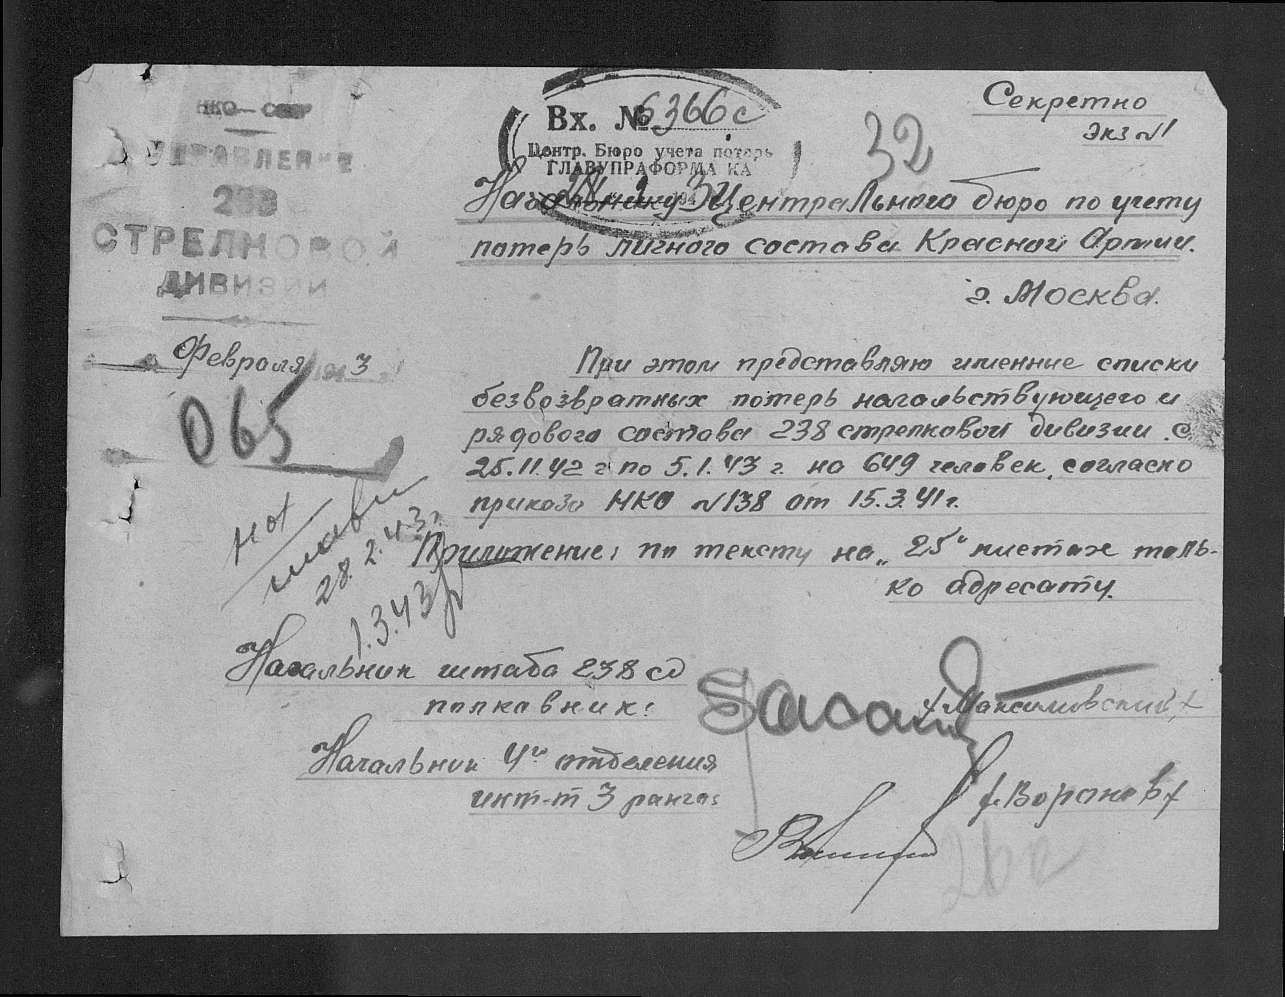 НКО — СССР
УПРАВЛЕНИЕ
238
СТРЕЛКОВОЙ
ДИВИЗИИ
Февраля 1943
065
Вх. № 6366с
Центр. Бюро учета потерь
ГЛАВУПРАФОРМА КА
32
Секретно
экз №1
Начальнику Центрального бюро по учету
потерь личного состава Красной Армии.
г. Москва.
При этом представляю именные списки
безвозвратных потерь начальствующего и
рядового состава 238 стрелковой дивизии с
25.11.42 г. по 5.1.43 г. на 649 человек, согласно
приказа НКО №138 от 15.3.41г.
Приложение: по тексту на „25" листах толь-
ко адресату.
28.2.43г.
1.3.43
Начальник штаба 238 сд
полковник:
/Максимовский/
Начальник 4го отделения
инт-т 3 ранга:
/Воронов/